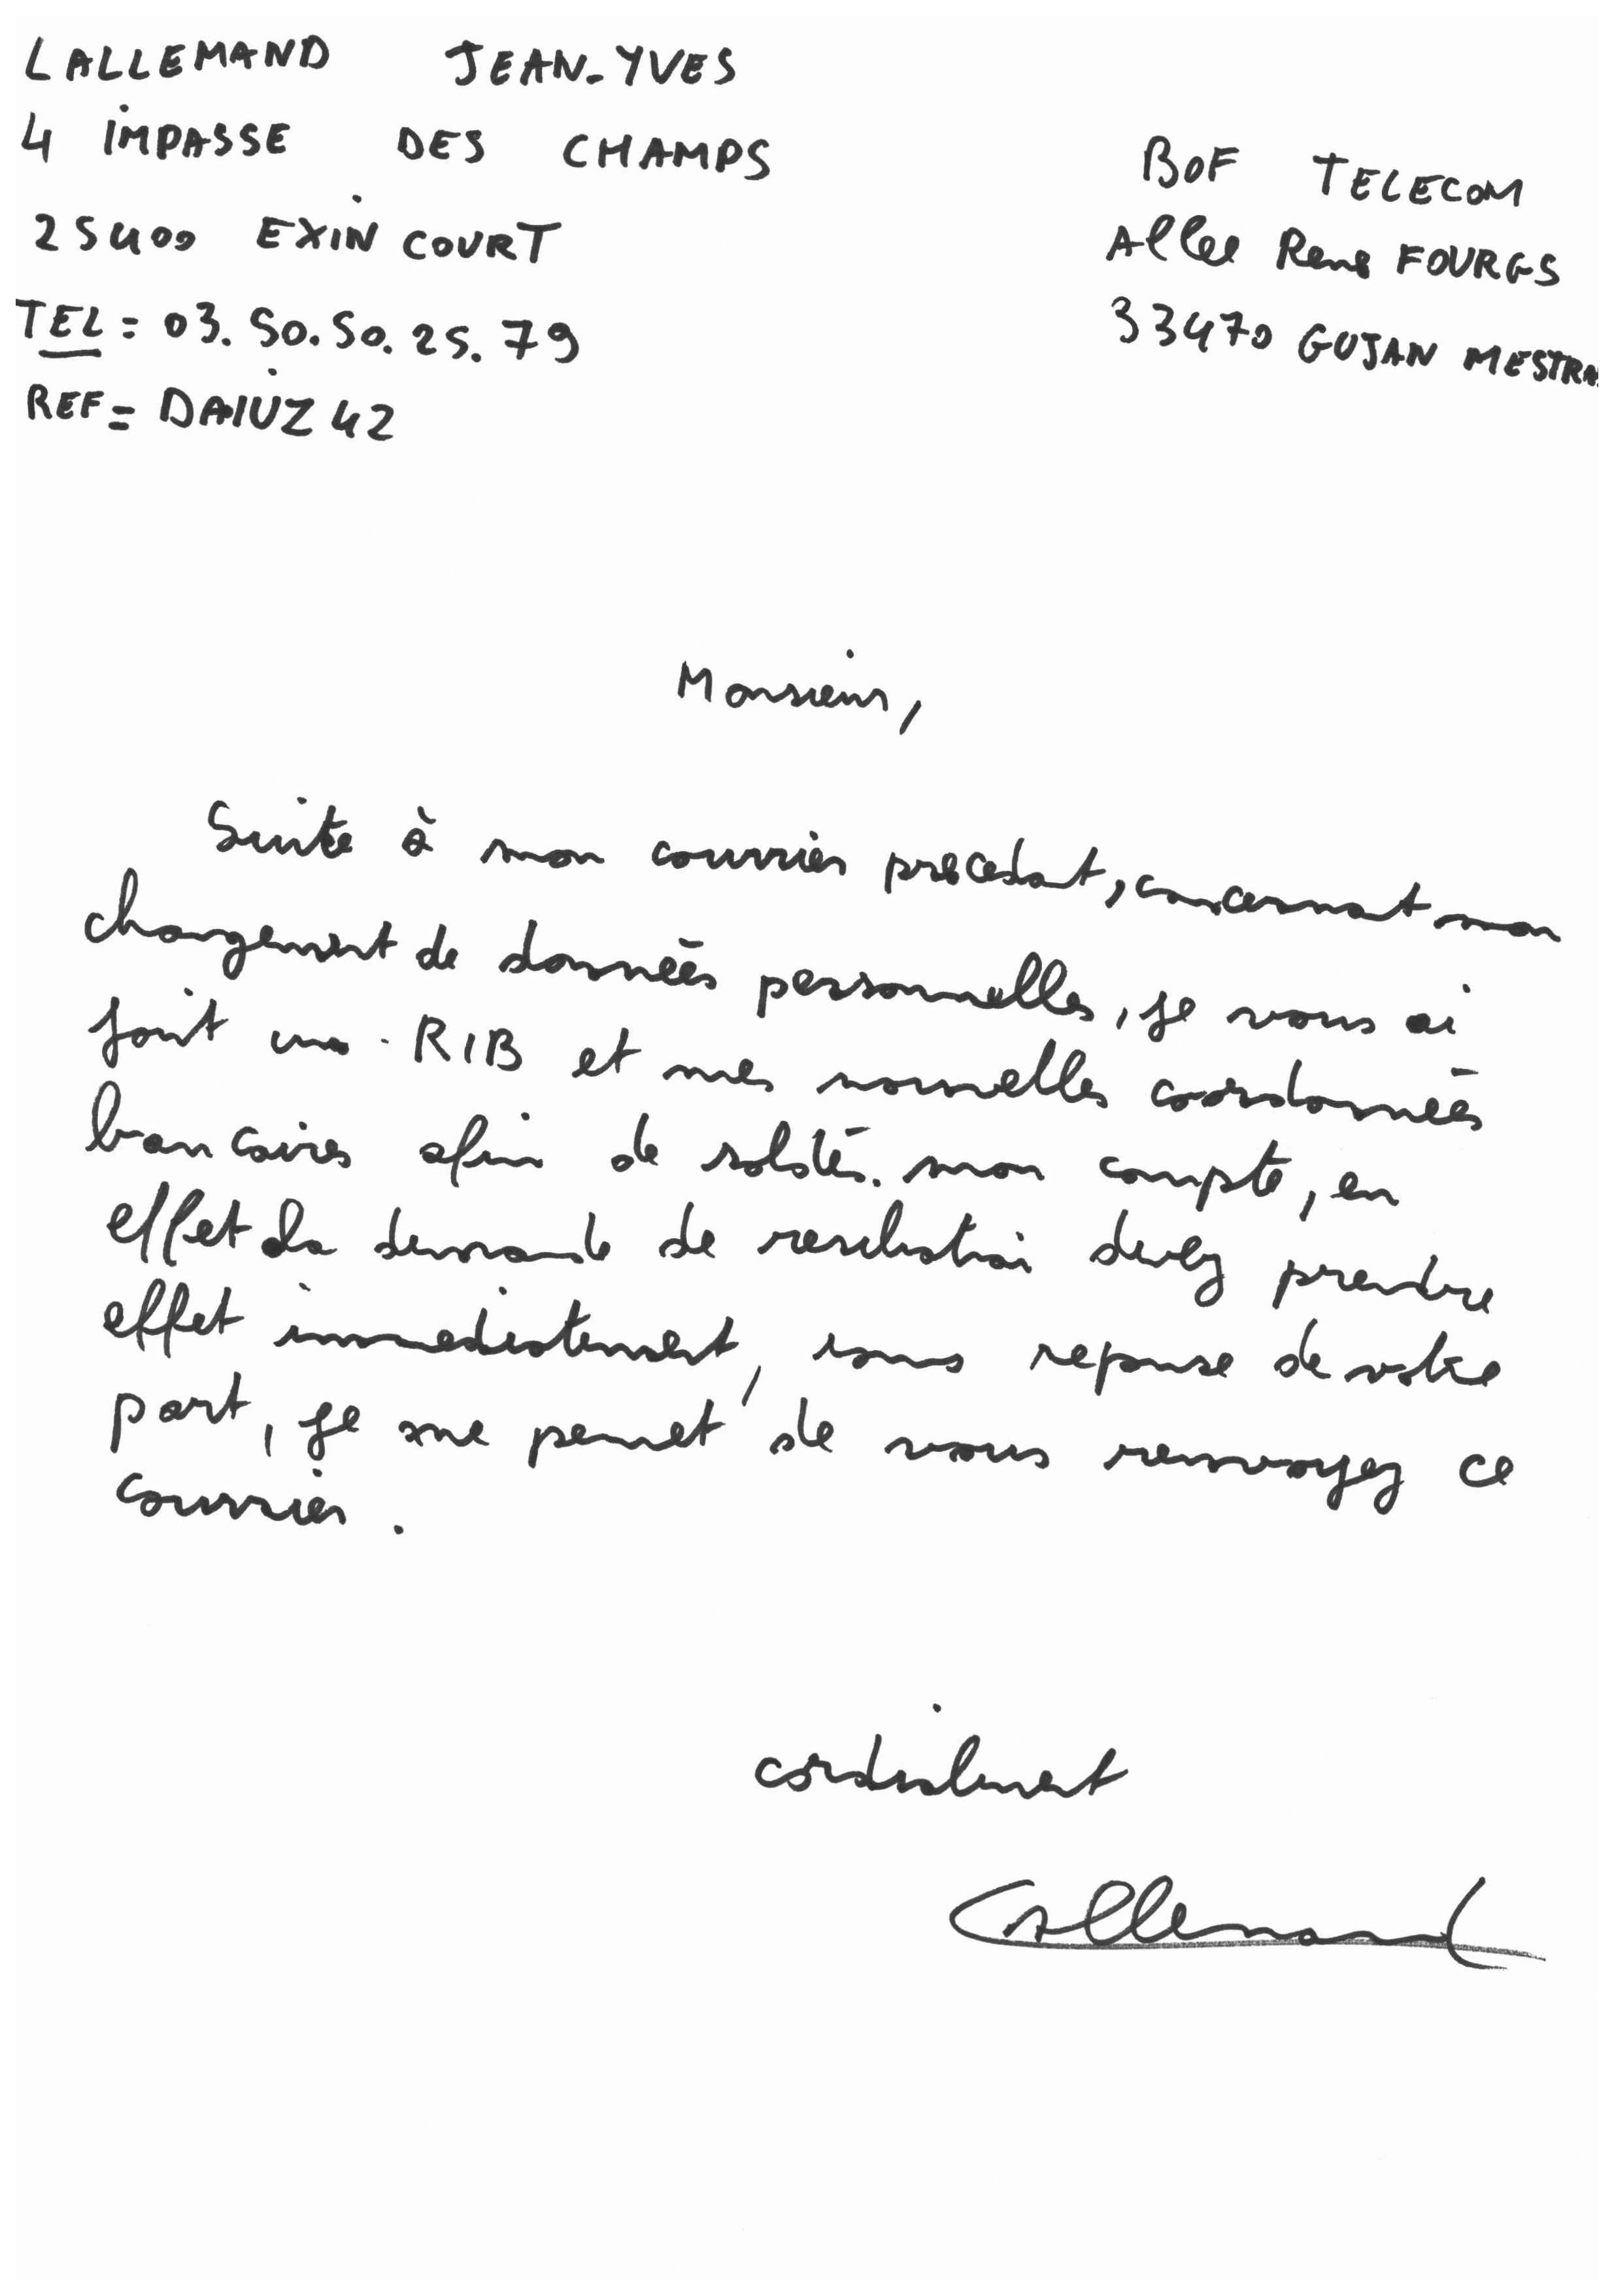 LALLEMAND JEAN-YVES
4 IMPASSE DES CHAMPS
25400 EXINCOURT
TEL = 03.50.50.25.79
REF = DAIUZ42
BOF TELECOM
Allee Rene FOURGS
33470 GUJAN MESTRA
Monsieur,
Suite à mon courrier precedant, concernant mon
changement de données personnelles, je vous ai
joint un RIB et mes nouvelles coordonnées
bancaires afin de soldés mon compte, en
effet la demande de resiliation devez prendre
effet immediatement, sans reponse de votre
part, je me permet de vous renvoyez ce
courrier.
cordialement
Lallemand